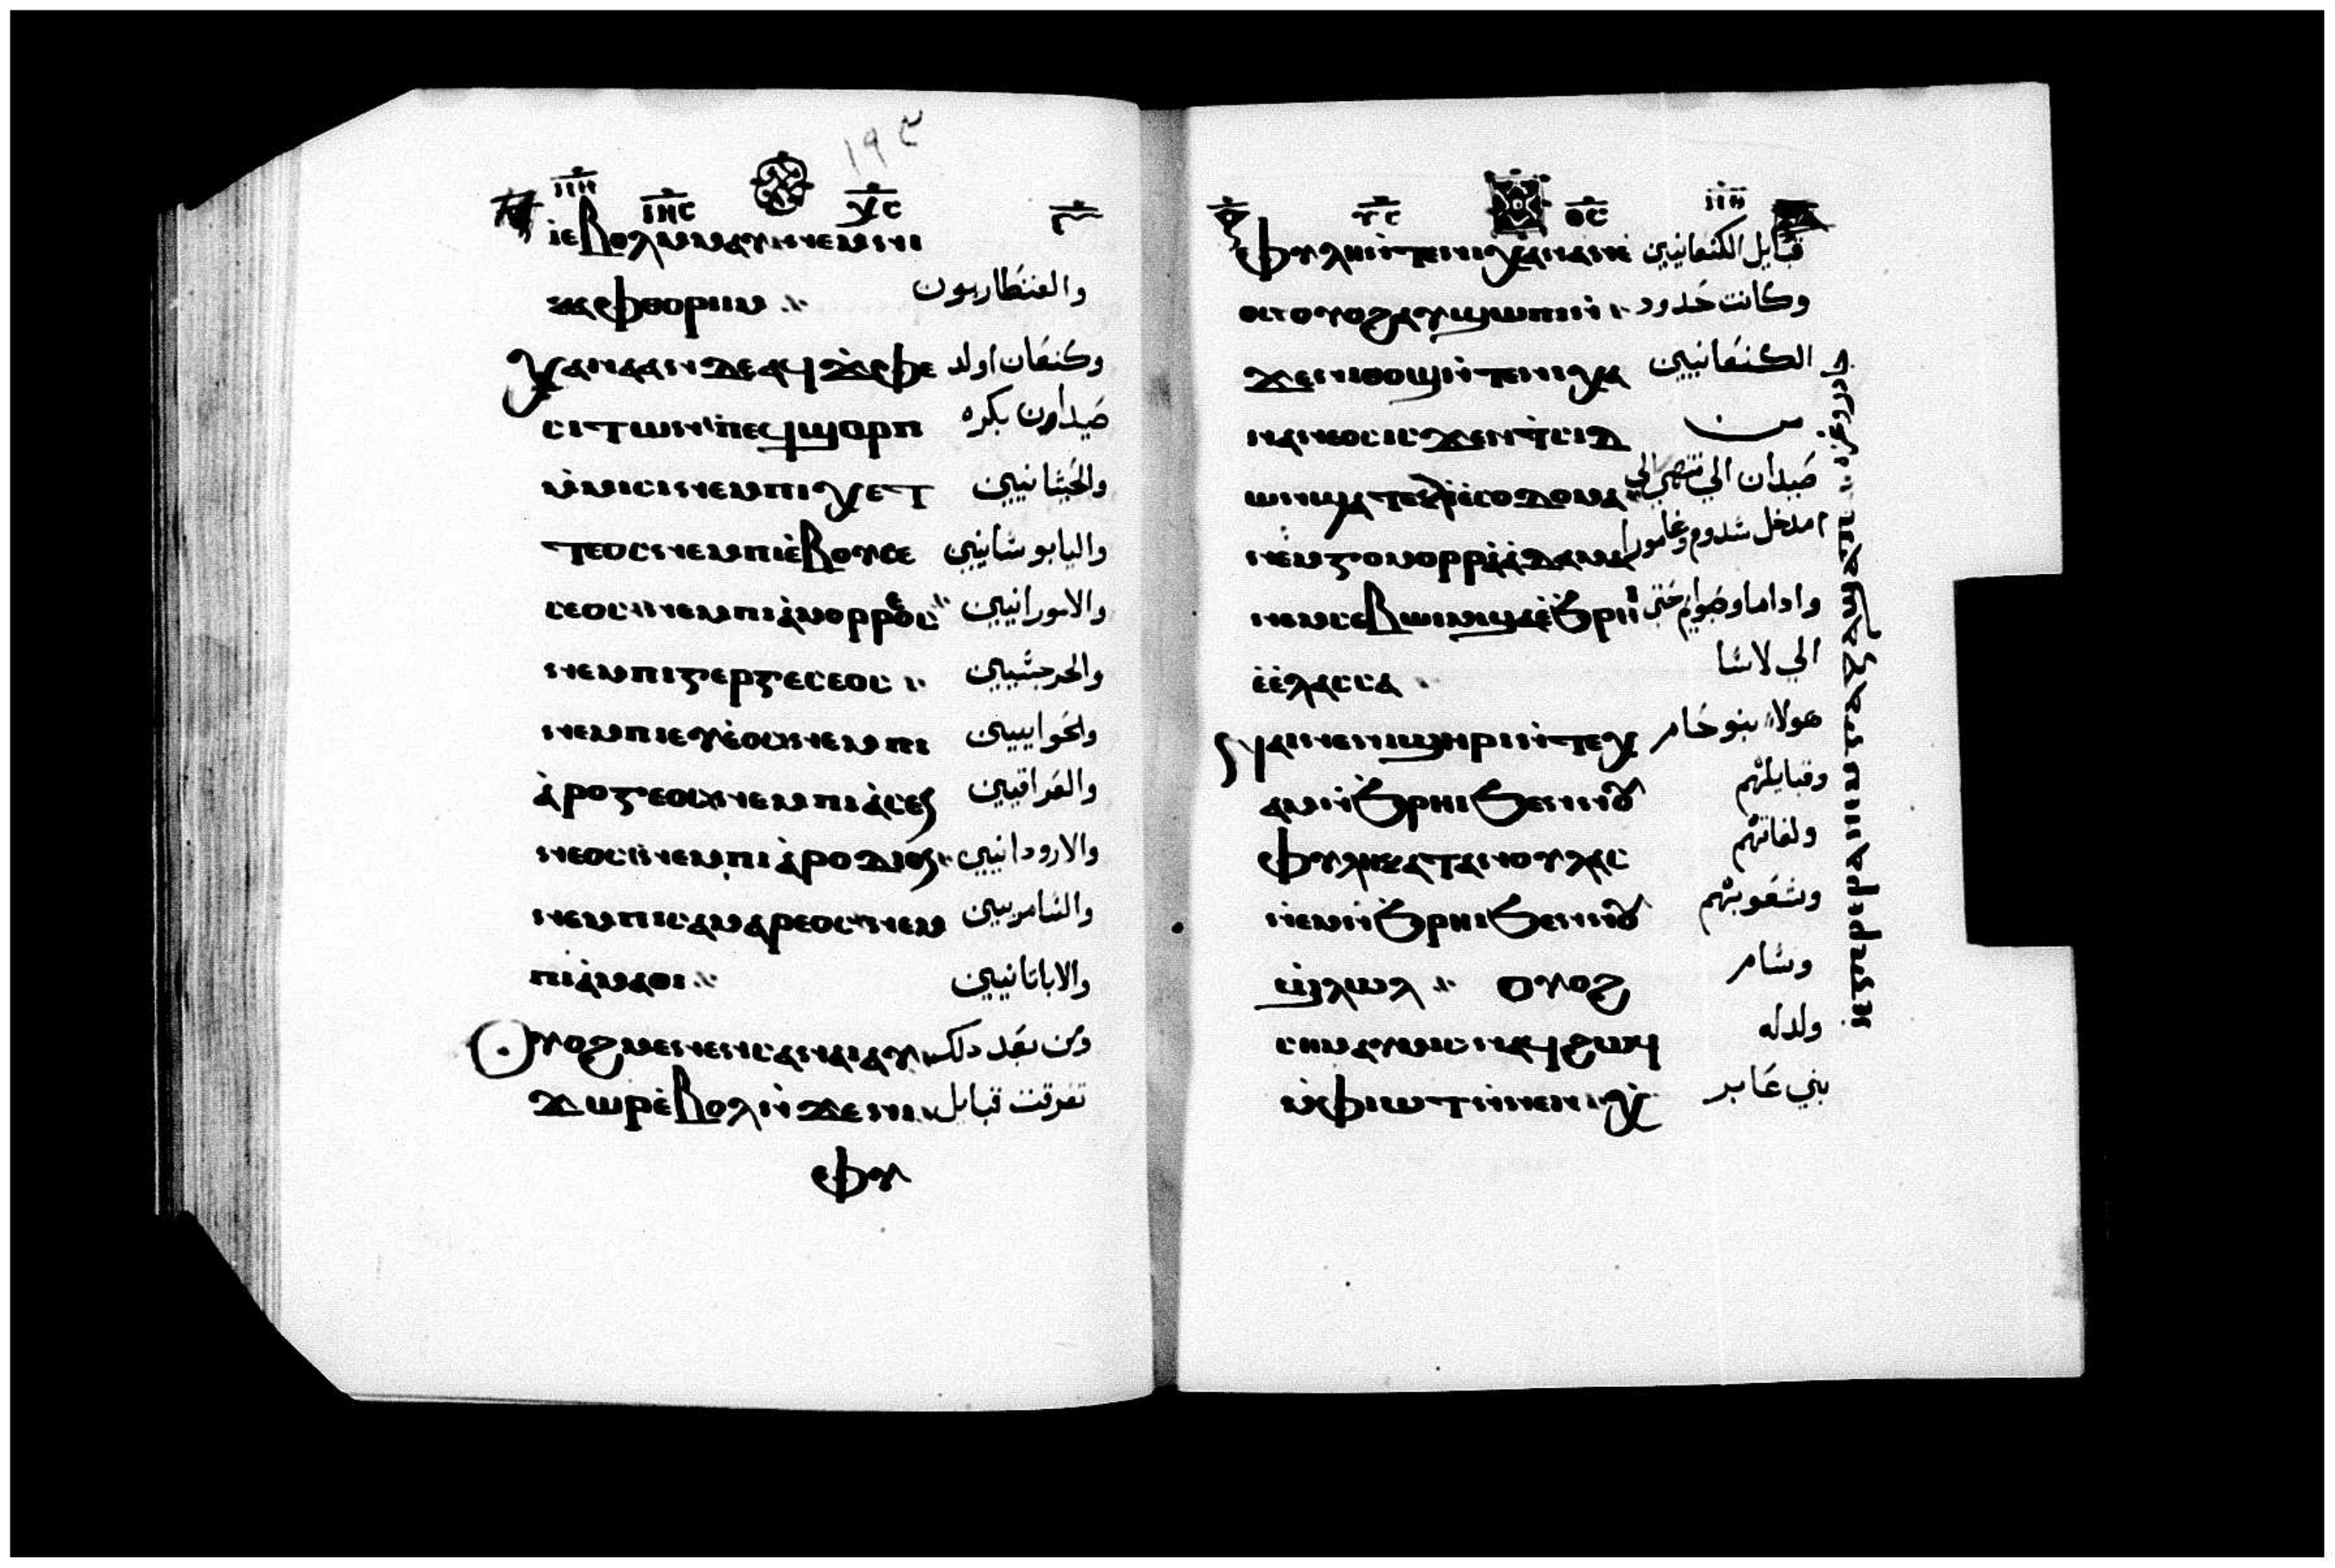 ١٩٤
ⲓ̅ⲏ̅ⲥ̅ ⲭ̅ⲥ̅
ⲓⲉⲃⲟⲗⲙⲙⲁⲩⲛⲉⲙⲛⲓ
ⲕⲁⲫⲑⲟⲣⲓⲓⲙ والقنطاريون
ⲭⲁⲛⲁⲁⲛⲇⲉⲁϥϫ̀ⲫⲉ وكنعان اولد
ⲥⲓⲧⲱⲛⲡⲉϥϣⲟⲣⲡ صيداون بكره
ⲙ̀ⲙⲓⲥⲓⲛⲉⲙⲡⲓⲭⲉⲧ والحيثانيين
ⲧⲉⲟⲥⲛⲉⲙⲡⲓⲉ̀ⲃⲟⲩⲥⲉ واليابوسانيين
ⲥⲉⲟⲥⲛⲉⲙⲡⲓⲁ̀ⲙⲟⲣⲣⲉⲟⲥ والامورانيين
ⲛⲉⲙⲡⲓⲅⲉⲣⲅⲉⲥⲉⲟⲥ والجرجسيين
ⲛⲉⲙⲡⲓⲉⲩⲉ̀ⲟⲥⲛⲉⲙⲡⲓ والحواييين
ⲁ̀ⲣⲟⲩⲕⲉⲟⲥⲛⲉⲙⲡⲓⲁ̀ⲥⲉ والعراقيين
ⲛⲉⲟⲥⲛⲉⲙⲡⲓⲁ̀ⲣⲟⲇⲓⲟⲥ والارودانيين
ⲛⲉⲙⲡⲓⲥⲁⲙⲁⲣⲉⲟⲥⲛⲉⲙ والسامريين
ⲡⲓⲁ̀ⲙⲁⲑⲓ والاباتانيين
ⲟⲩⲟϩⲙⲉⲛⲉⲛⲥⲁⲛⲁⲓⲁⲩ ومن بعد دلك
ϫⲱⲣⲉ̀ⲃⲟⲗⲛ̀ϫⲉⲛⲓ تفرقت قبايل
ⲫⲩ
ⲩ̅ⲥ̅ ⲑ̅ⲥ̅
ⲫⲩⲗⲏⲛ̀ⲧⲉⲛⲓⲭⲁⲛⲁⲛⲉ قبايل الكنعانيين
ⲟⲥⲟⲩⲟϩⲁⲩϣⲱⲡⲓⲛ̀ وكانت حدود
ϫⲉⲛⲓⲑⲟϣⲛ̀ⲧⲉⲛⲓⲭⲁ الكنعانيين
ⲛⲁⲛⲉⲟⲥⲓⲥϫⲉⲛⲧ̀ⲥⲓⲇ من
ⲱⲛϣⲁⲧⲉⲕⲓ̀ⲉ̀ⲥⲟⲇⲟⲙⲁ صيدان الي تنتهي الي
ⲛⲉⲙⲅⲟⲙⲟⲣⲣⲁⲁ̀ⲇⲁⲙⲁ مدخل سدوم وغامورا
ⲛⲉⲙⲥⲉⲃⲱⲓⲙϣⲁⲉ̀ϧⲣⲏⲓ واداما وصبوايم حتى
ⲉ̀ⲉ̀ⲗⲁⲥⲥⲁ الي لاسا
ⲛⲁⲓⲛⲉⲛⲓϣⲏⲣⲓⲛ̀ⲧⲉⲭ هولاء بنو حام
ⲁⲙⲛ̀ϧⲣⲏⲓϧⲉⲛⲛⲟⲩ وقبايلهم
ⲫⲩⲗⲏⲕⲁⲧⲁⲛⲟⲩⲗⲁⲥ ولغاتهم
ⲛⲉⲙⲛ̀ϧⲣⲏⲓϧⲉⲛⲛⲟⲩ وشعوبهم
ⲟⲩⲟϩ وسام
ⲥⲏⲙⲁⲩⲙⲓⲥⲓⲛⲁϥϩⲱϥ ولد له
ⲙ̀ⲫⲓⲱⲧⲛ̀ⲛⲉⲛ بني عابر